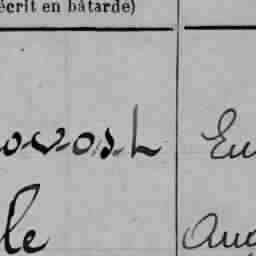 écrit en bâtarde)
ovost Eu
le Aug